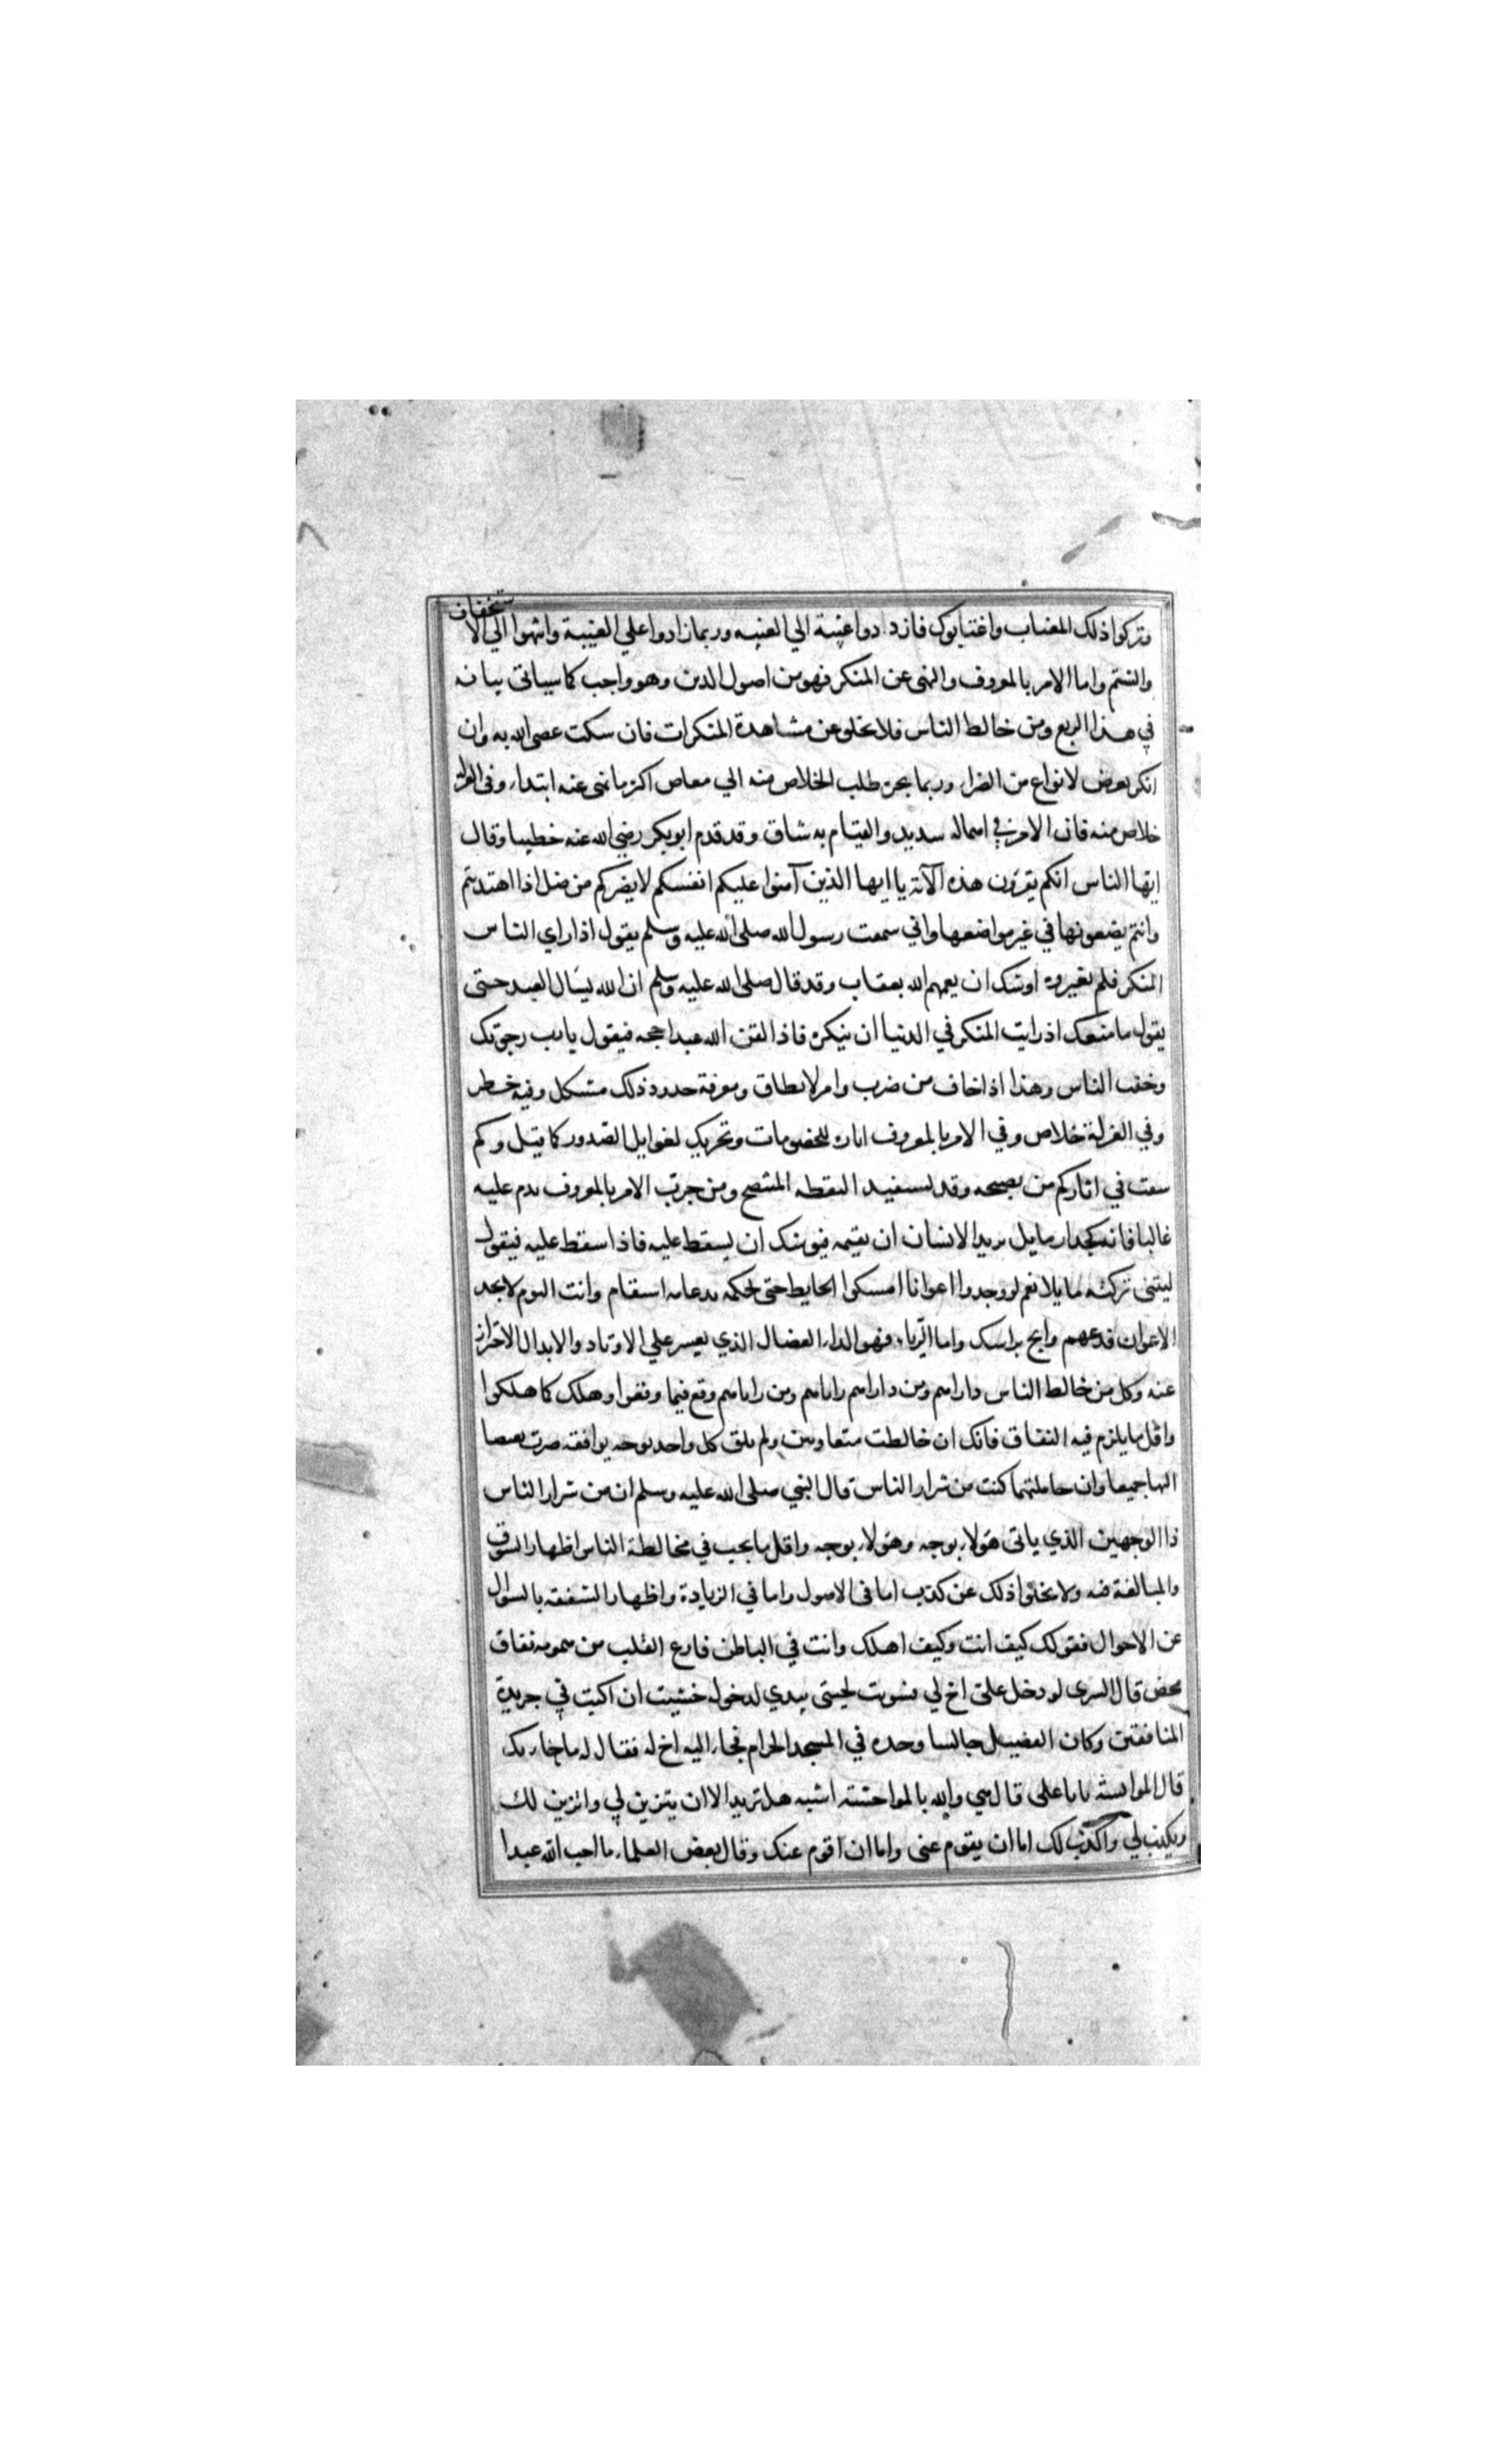 وتركوا ذلك المغتاب واغتابوك فازدادوا غيبة الي الغيبه وربما زادوا علي الغيبة وانتهوا الي الاستخفاف
والشتم واما الامر بالمعروف والنهى عن المنكر فهو من اصول الدين وهو واجب كما سياتى بيانه
في هذا الربع ومن خالط الناس فلا يخلو عن مشاهدة المنكرات فان سكت عصى الله به وان
انكر تعرض لانواع من الضرار وربما يجره طلب الخلاص منه الي معاص اكثر مما نهى عنه ابتداء وفى العزلة
خلاص منه فان الامر في اهماله شديد والقيام به شاق وقد قدم ابو بكر رضي الله عنه خطيبا وقال
ايها الناس انكم تقرؤن هذه الآية يا ايها الذين آمنوا عليكم انفسكم لا يضركم من ضل اذا اهتديتم
وانتم تضعونها في غير مواضعها واني سمعت رسول الله صلى الله عليه وسلم يقول اذا راي الناس
المنكر فلم يغيروه اوشك ان يعمهم الله بعقاب وقد قال صلى الله عليه وسلم ان الله ليسال العبد حتى
يقول ما منعك اذ رايت المنكر في الدنيا ان ينكره فاذا لقن الله عبدا حجه فيقول يا رب رجوتك
وخفت الناس وهذا اذا خاف من ضرب وامر لا يطاق ومعرفة حدود ذلك مشكل وفيه خطر
وفي العزلة خلاص وفي الامر بالمعروف اثارة للخصومات وتحريك لغوايل الصدور كما قيل وكم
سقت في اثاركم من نصيحه وقد يستفيد البغضه المتنصح ومن جرب الامر بالمعروف ندم عليه
غالبا فانه كجدار مايل يريد الانسان ان يقيمه فيوشك ان يسقط عليه فاذا سقط عليه فيقول
ليتنى تركته مايلا نعم لو وجدوا اعوانا امسكوا الحايط حتى يحكمه بدعامه استقام وانت اليوم لا تجد
الاعوان فدعهم وانج براسك واما الرياء فهو الداء العضال الذي يعسر علي الاوتاد والابدال الاحتراز
عنه وكل من خالط الناس داراهم ومن داراهم راياهم ومن راياهم وقع فيما وقعوا وهلك كما هلكوا
واقل ما يلزم فيه النفاق فانك ان خالطت متعاديين ولم تلق كل واحد بوجه يوافقه صرت بغيضا
اليها جميعا وان جاملتهما كنت من شرار الناس قال النبي صلى الله عليه وسلم ان من شرار الناس
ذا الوجهين الذي ياتى هؤلاء بوجه وهؤلاء بوجه واقل ما يجب في مخالطة الناس اظهار الشوق
والمبالغة فيه ولا يخلوا ذلك عن كذب اما فى الاصول واما في الزيادة واظهار الشفقة بالسوال
عن الاحوال فقولك كيف انت وكيف اهلك وانت في الباطن فارع القلب من همومه نفاق
محض قال السرى لو دخل علىّ اخ لي فسويت لحيتى بيدي لدخوله خشيت ان اكتب في جريدة
المنافقين وكان الفضيل جالسا وحده في المسجد الحرام فجاء اليه اخ له فقال له ما جاء بك
قال الموانسة يا با على قال هي والله بالمواحشة اشبه هل تريد الا ان يتزين لي واتزين لك
ويكذب لي واكذب لك اما ان يقوم عنى واما ان اقوم عنك وقال بعض العلماء ما احب الله عبدا